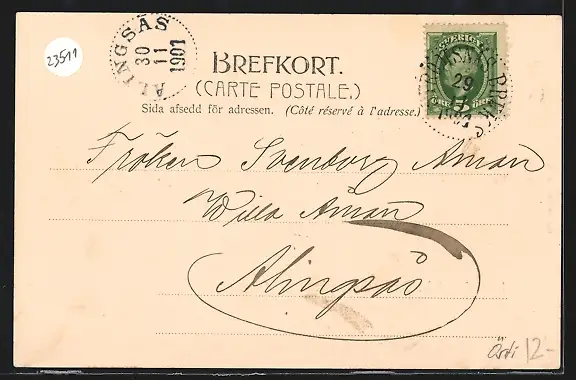 23511
ALINGSÅS
30
11
1901
BREFKORT.
(CARTE POSTALE.)
Sida afsedd för adressen. (Côté réservé à l'adresse.)
SVERIGE
29
11
Fröken Svenborg Åman
Willa Åman
Alingsås
12-